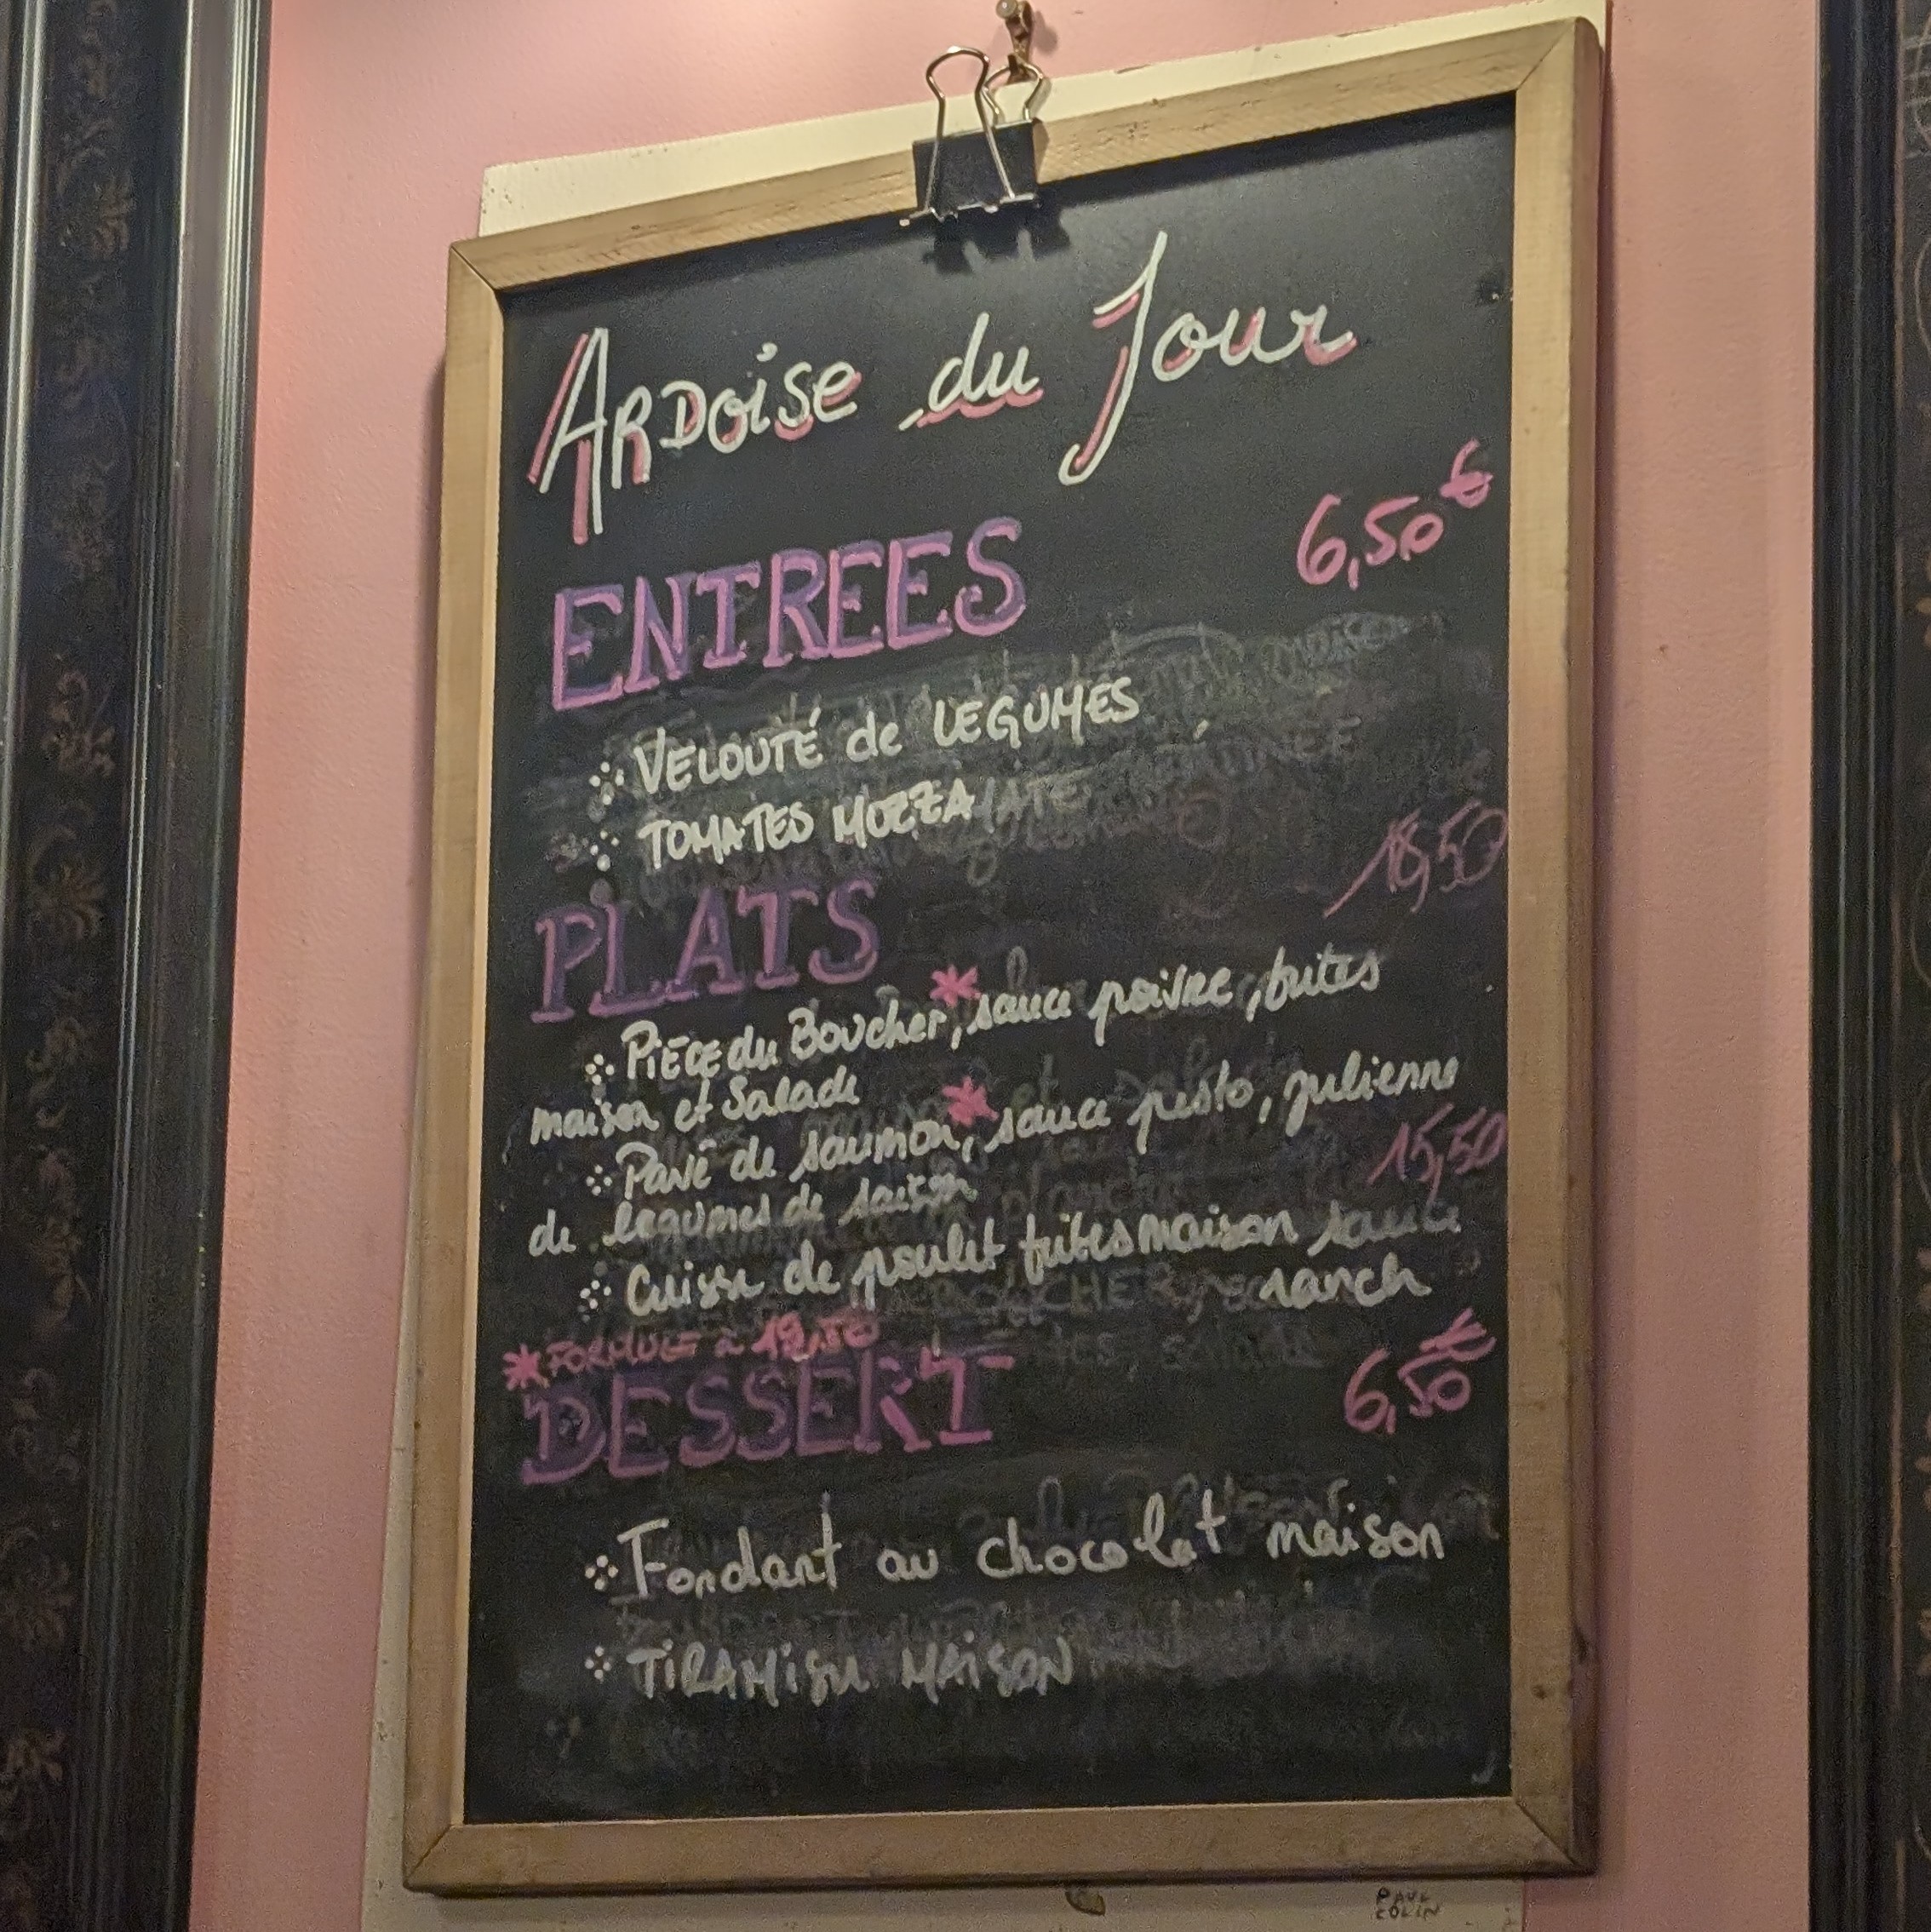 ARDOISE du Jour
ENTREES 6,50 €
VELOUTÉ de LEGUMES
TOMATES MOZZA
PLATS 18,50
PIÈCE du Boucher*, sauce poivre, frites
maison et Salade
Pavé de saumon*, sauce pesto, julienne
de legumes de saison
15,50
Cuisse de poulet frites maison sauce
ranch
* FORMULE à 19,50
DESSERT 6,50 €
Fondant au chocolat maison
TIRAMISU MAISON
PAUL
COLIN